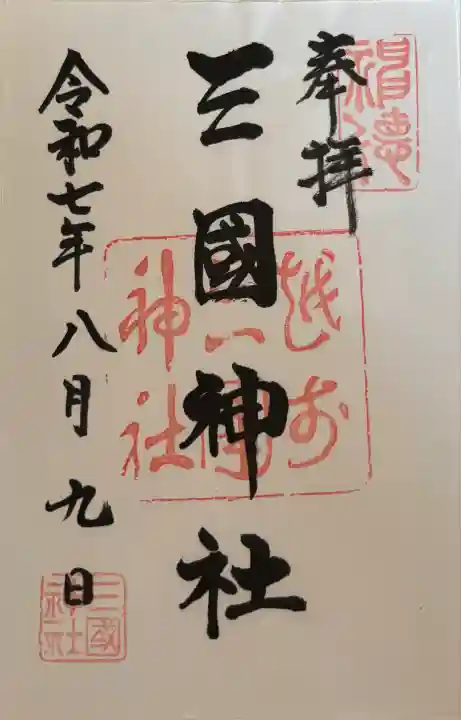 奉拝
三國神社
越前
三國
神社
令和七年八月九日
三國
神社